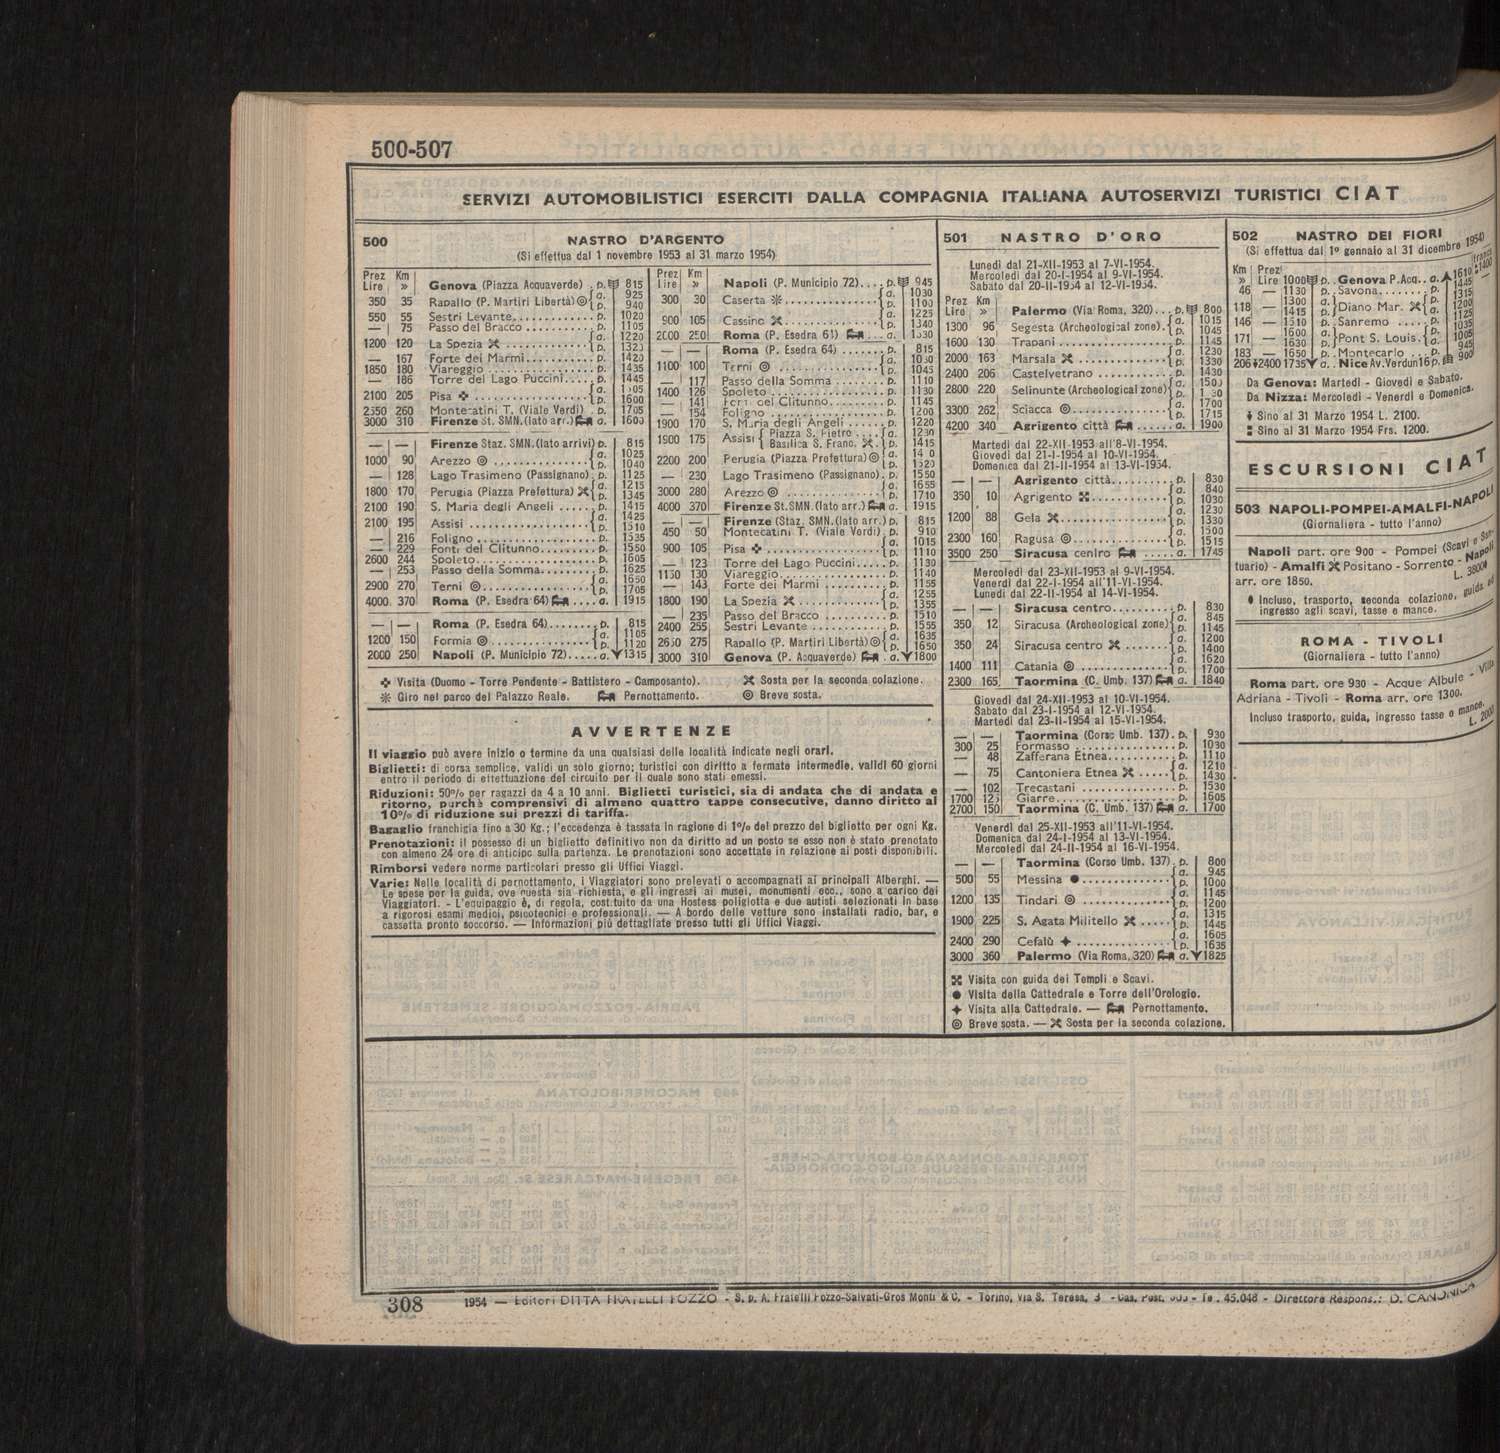 500-507
SERVIZI AUTOMOBILISTICI ESERCITI DALLA COMPAGNIA ITALIANA AUTOSERVIZI TURISTICI CIAT
500 NASTRO D'ARGENTO
(Si effettua dal 1 novembre 1953 al 31 marzo 1954)
Prez Lire Km »
Genova (Piazza Acquaverde) . p. 815
350 35 Rapallo (P. Martiri Libertà) ◎ a. 925
p. 940
550 55 Sestri Levante............. p. 1020
— 75 Passo del Bracco ........... p. 1105
1200 120 La Spezia ............... a. 1220
p. 1320
— 167 Forte dei Marmi.......... p. 1420
1850 180 Viareggio ............... p. 1435
— 186 Torre del Lago Puccini..... p. 1445
2100 205 Pisa ................... a. 1505
p. 1600
2350 260 Montecatini T. (Viale Verdi) . p. 1705
3000 310 Firenze St. SMN.(lato arr.) a. 1800
— — Firenze Staz. SMN.(lato arrivi) p. 815
1000 90 Arezzo ◎ .............. a. 1025
p. 1040
— 128 Lago Trasimeno (Passignano) . p. 1125
1800 170 Perugia (Piazza Prefettura) a. 1215
p. 1345
2100 190 S. Maria degli Angeli ...... p. 1415
2100 195 Assisi .................. a. 1425
p. 1510
— 216 Foligno ................. p. 1535
— 229 Fonti del Clitunno......... p. 1550
2600 244 Spoleto.................. p. 1605
— 253 Passo della Somma........ p. 1625
2900 270 Terni ◎................ a. 1650
p. 1705
4000 370 Roma (P. Esedra 64) .... a. 1915
— — Roma (P. Esedra 64)........ p. 815
1200 150 Formia ◎ .............. a. 1105
p. 1120
2000 250 Napoli (P. Municipio 72)..... a. 1315
Prez Lire Km »
Napoli (P. Municipio 72).... p. 945
300 30 Caserta ............. a. 1030
p. 1100
900 105 Cassino .............. a. 1225
p. 1340
2000 250 Roma (P. Esedra 64) ... a. 1630
— — Roma (P. Esedra 64) ....... p. 815
1100 100 Terni ◎ ............... a. 1030
p. 1045
— 117 Passo della Somma ........ p. 1110
1400 126 Spoleto .................. p. 1130
— 141 Fonti del Clitunno......... p. 1145
— 154 Foligno .................. p. 1200
1900 170 S. Maria degli Angeli ...... p. 1220
1900 175 Assisi { Piazza S. Pietro .... a. 1230
Basilica S. Franc. p. 1415
2200 200 Perugia (Piazza Prefettura) ◎ a.
p. 1520
— 230 Lago Trasimeno (Passignano). p. 1550
3000 280 Arezzo ◎ .............. a. 1655
p. 1710
4000 370 Firenze St.SMN.(lato arr.) a. 1915
— — Firenze (Staz. SMN.(lato arr.) p. 815
450 50 Montecatini T. (Viale Verdi) . p. 910
900 105 Pisa ................. a. 1015
p. 1110
— 123 Torre del Lago Puccini..... p. 1130
1150 130 Viareggio................. p. 1140
— 143 Forte dei Marmi .......... p. 1155
1800 190 La Spezia ............. a. 1255
p. 1355
— 235 Passo del Bracco .......... p. 1510
2400 255 Sestri Levante ............ p. 1555
2650 275 Rapallo (P. Martiri Libertà) ◎ a. 1635
p. 1650
3000 310 Genova (P. Acquaverde) . a. 1800
Visita (Duomo - Torre Pendente - Battistero - Camposanto). Sosta per la seconda colazione.
Giro nel parco del Palazzo Reale. Pernottamento. ◎ Breve sosta.
AVVERTENZE
Il viaggio può avere inizio o termine da una qualsiasi delle località indicate negli orari.
Biglietti: di corsa semplice, validi un solo giorno; turistici con diritto a fermate intermedie, validi 60 giorni
entro il periodo di effettuazione del circuito per il quale sono stati emessi.
Riduzioni: 50% per ragazzi da 4 a 10 anni. Biglietti turistici, sia di andata che di andata e
ritorno, purchè comprensivi di almeno quattro tappe consecutive, danno diritto al
10% di riduzione sui prezzi di tariffa.
Bagaglio franchigia fino a 30 Kg.; l'eccedenza è tassata in ragione di 1% del prezzo del biglietto per ogni Kg.
Prenotazioni: il possesso di un biglietto definitivo non da diritto ad un posto se esso non è stato prenotato
con almeno 24 ore di anticipo sulla partenza. Le prenotazioni sono accettate in relazione ai posti disponibili.
Rimborsi vedere norme particolari presso gli Uffici Viaggi.
Varie: Nelle località di pernottamento, i Viaggiatori sono prelevati o accompagnati ai principali Alberghi. —
Le spese per la guida, ove questa sia richiesta, e gli ingressi ai musei, monumenti ecc., sono a carico dei
Viaggiatori. - L'equipaggio è, di regola, costituito da una Hostess poliglotta e due autisti selezionati in base
a rigorosi esami medici, psicotecnici e professionali. — A bordo delle vetture sono installati radio, bar, e
cassetta pronto soccorso. — Informazioni più dettagliate presso tutti gli Uffici Viaggi.
501 NASTRO D'ORO
Lunedì dal 21-XII-1953 al 7-VI-1954.
Mercoledì dal 20-I-1954 al 9-VI-1954.
Sabato dal 20-II-1954 al 12-VI-1954.
Prez Lire Km »
Palermo (Via Roma, 320)... p. 800
1300 96 Segesta (Archeological zone). a. 1015
p. 1045
1600 130 Trapani ................. p. 1145
2000 163 Marsala .............. a. 1230
p. 1330
2400 206 Castelvetrano ............. p. 1430
2800 220 Selinunte (Archeological zone) a. 1500
p.
3300 262 Sciacca ◎.............. a. 1700
p. 1715
4200 340 Agrigento città ...... a. 1900
Martedì dal 22-XII-1953 all'8-VI-1954.
Giovedì dal 21-I-1954 al 10-VI-1954.
Domenica dal 21-II-1954 al 13-VI-1954.
— — Agrigento città.......... p. 830
350 10 Agrigento ........... a. 840
p. 1030
1200 88 Gela ................ a. 1230
p. 1330
2300 160 Ragusa ◎.............. a. 1500
p. 1515
3500 250 Siracusa centro ..... a. 1745
Mercoledì dal 23-XII-1953 al 9-VI-1954.
Venerdì dal 22-I-1954 all'11-VI-1954.
Lunedì dal 22-II-1954 al 14-VI-1954.
— — Siracusa centro.......... p. 830
350 12 Siracusa (Archeological zone) a. 845
p. 1145
350 24 Siracusa centro ....... a. 1200
p. 1400
1400 111 Catania ◎ ............. a. 1620
p. 1700
2300 165 Taormina (C. Umb. 137) a. 1840
Giovedì dal 24-XII-1953 al 10-VI-1954.
Sabato dal 23-I-1954 al 12-VI-1954.
Martedì dal 23-II-1954 al 15-VI-1954.
— — Taormina (Corso Umb. 137) . p. 930
300 25 Formasso ............... p. 1030
— 48 Zafferana Etnea........... p. 1110
— 75 Cantoniera Etnea ..... a. 1210
p. 1430
— 102 Trecastani .............. p. 1530
1700 125 Giarre................... p. 1605
2700 150 Taormina (C. Umb. 137) a. 1700
Venerdì dal 25-XII-1953 all'11-VI-1954.
Domenica dal 24-I-1954 al 13-VI-1954.
Mercoledì dal 24-II-1954 al 16-VI-1954.
— — Taormina (Corso Umb. 137) . p. 800
500 55 Messina ●.............. a. 945
p. 1000
1200 135 Tindari ◎ ............. a. 1145
p. 1200
1900 225 S. Agata Militello ..... a. 1315
p. 1445
2400 290 Cefalù ............... a. 1605
p. 1635
3000 360 Palermo (Via Roma, 320) a. 1825
Visita con guida dei Templi e Scavi.
● Visita della Cattedrale e Torre dell'Orologio.
✦ Visita alla Cattedrale. — Pernottamento.
◎ Breve sosta. — Sosta per la seconda colazione.
502 NASTRO DEI FIORI
(Si effettua dal 1º gennaio al 31 dicembre 1954)
Km » Prez! Lire 1000 p. Genova P.Acq.. a. 1610 1400
46 — 1130 p. Savona........ p. 1445
118 — 1300 a. Diano Mar. p. 1315
1415 p. a. 1200
146 — 1510 p. Sanremo ..... p. 1125
171 — 1600 a. Pont S. Louis. p. 1035
1630 p. a. 1005
183 — 1650 p. Montecarlo ... p. 945
206 2400 1735 a. Nice Av.Verdun16 p. 900
Da Genova: Martedì - Giovedì e Sabato.
Da Nizza: Mercoledì - Venerdì e Domenica.
Sino al 31 Marzo 1954 L. 2100.
Sino al 31 Marzo 1954 Frs. 1200.
ESCURSIONI CIAT
503 NAPOLI-POMPEI-AMALFI-NAPOLI
(Giornaliera - tutto l'anno)
Napoli part. ore 900 - Pompei (Scavi e San-
tuario) - Amalfi Positano - Sorrento - Napoli
arr. ore 1850. L. 3800
Incluso, trasporto, seconda colazione, guida ed
ingresso agli scavi, tasse e mance.
ROMA - TIVOLI
(Giornaliera - tutto l'anno)
Roma part. ore 930 - Acque Albule - Villa
Adriana - Tivoli - Roma arr. ore 1300.
Incluso trasporto, guida, ingresso tasse e mance.
L. 2000
308 1954 — Editori DITTA FRATELLI POZZO - S. p. A. Fratelli Pozzo-Salvati-Gros Monti & C. - Torino, via S. Teresa, 3 - Cas. Post. - Te . 45.048 - Direttore Respons.: D. CANONICA